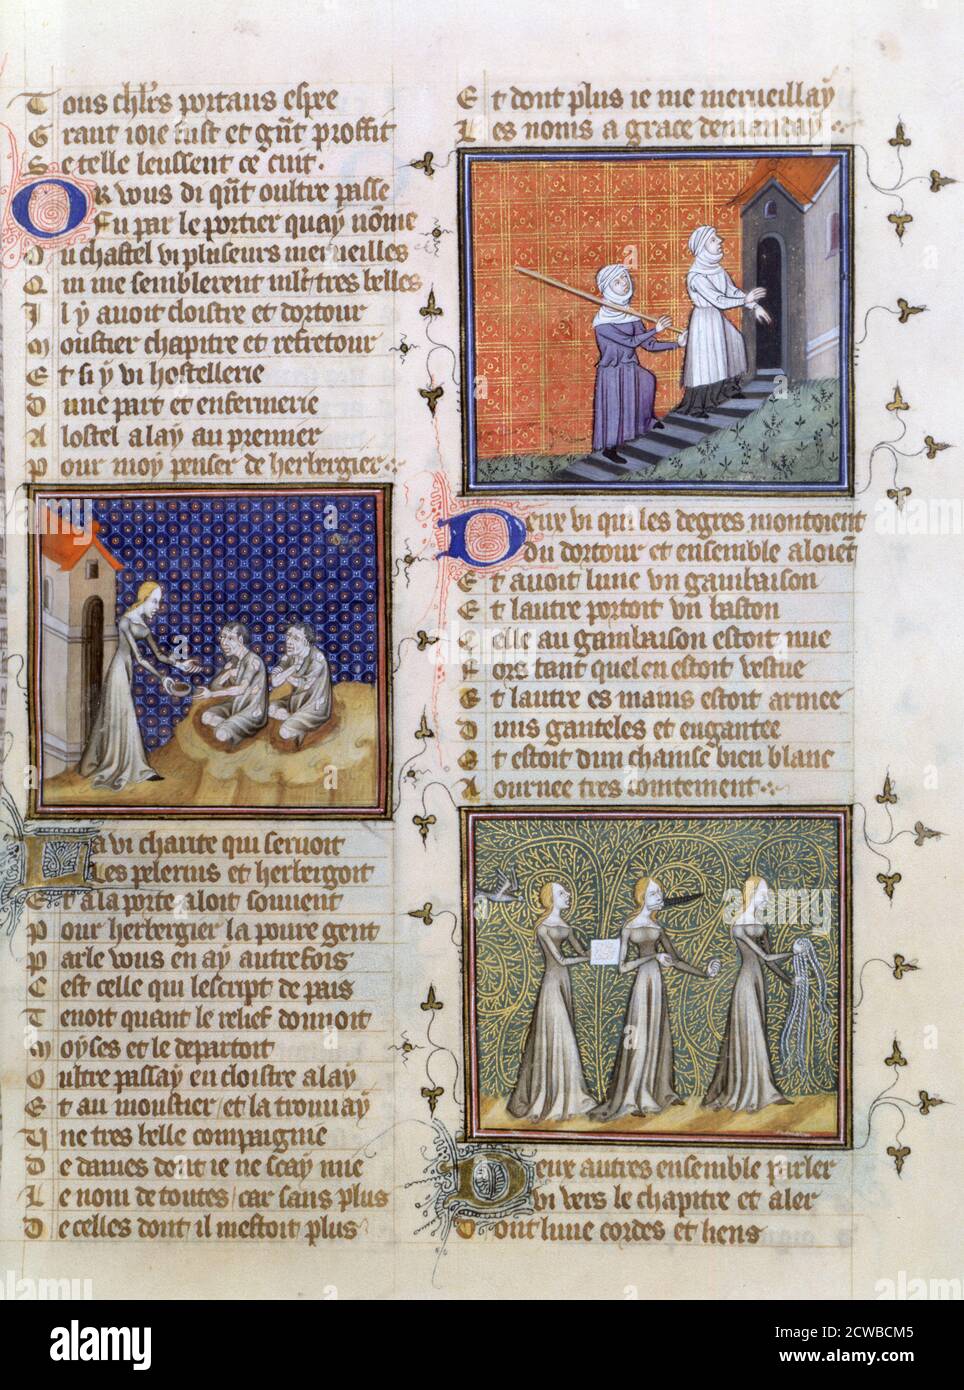 Tous chlrs portans espee
Grant ioie eust et gnt proffit
Se telle leussent ce cuit.
OR vous di qnt oultre passe
Fu par le portier quay nome
Ou chastel vi pluseurs merveilles
Qui me semblerent mlt tres belles
Il y avoit cloistre et dortour
Moustier chapitre et refretour
Et si y vi hostellerie
Dune part et enfermerie
A lostel alay au premier
Pour moy penser de herbergier
La vi charite qui servoit
Les pelerins et herbergoit
Et a la porte aloit souvent
Pour herbergier la poure gent
Parle vous en ay autrefois
Cest celle qui lescript de pais
Tenoit quant le relief donnoit
Moyses et le departoit
Oultre passay en cloistre alay
Et au moustier / et la trouvay
Une tres belle compaignie
De dames dont ie ne scay mie
Le nom de toutes / car sans plus
De celles dont il mestoit plus
Et dont plus ie me merveillay
Les noms a grace demanday
Deux vi qui les degres montoient
Du dortour et ensemble aloient
Et avoit lune un gambaison
Et lautre portoit un baston
Celle au gambaison estoit nue
Fors tant quel en estoit vestue
Et lautre es mains estoit armee
Duns ganteles et engantee
Et estoit dun chainse bien blanc
Aournee tres cointement
Deux autres ensemble parler
Vi vers le chapitre et aler
Dont lune cordes et liens
alamy
alamy
Image ID: 2CWBCM5
www.alamy.com